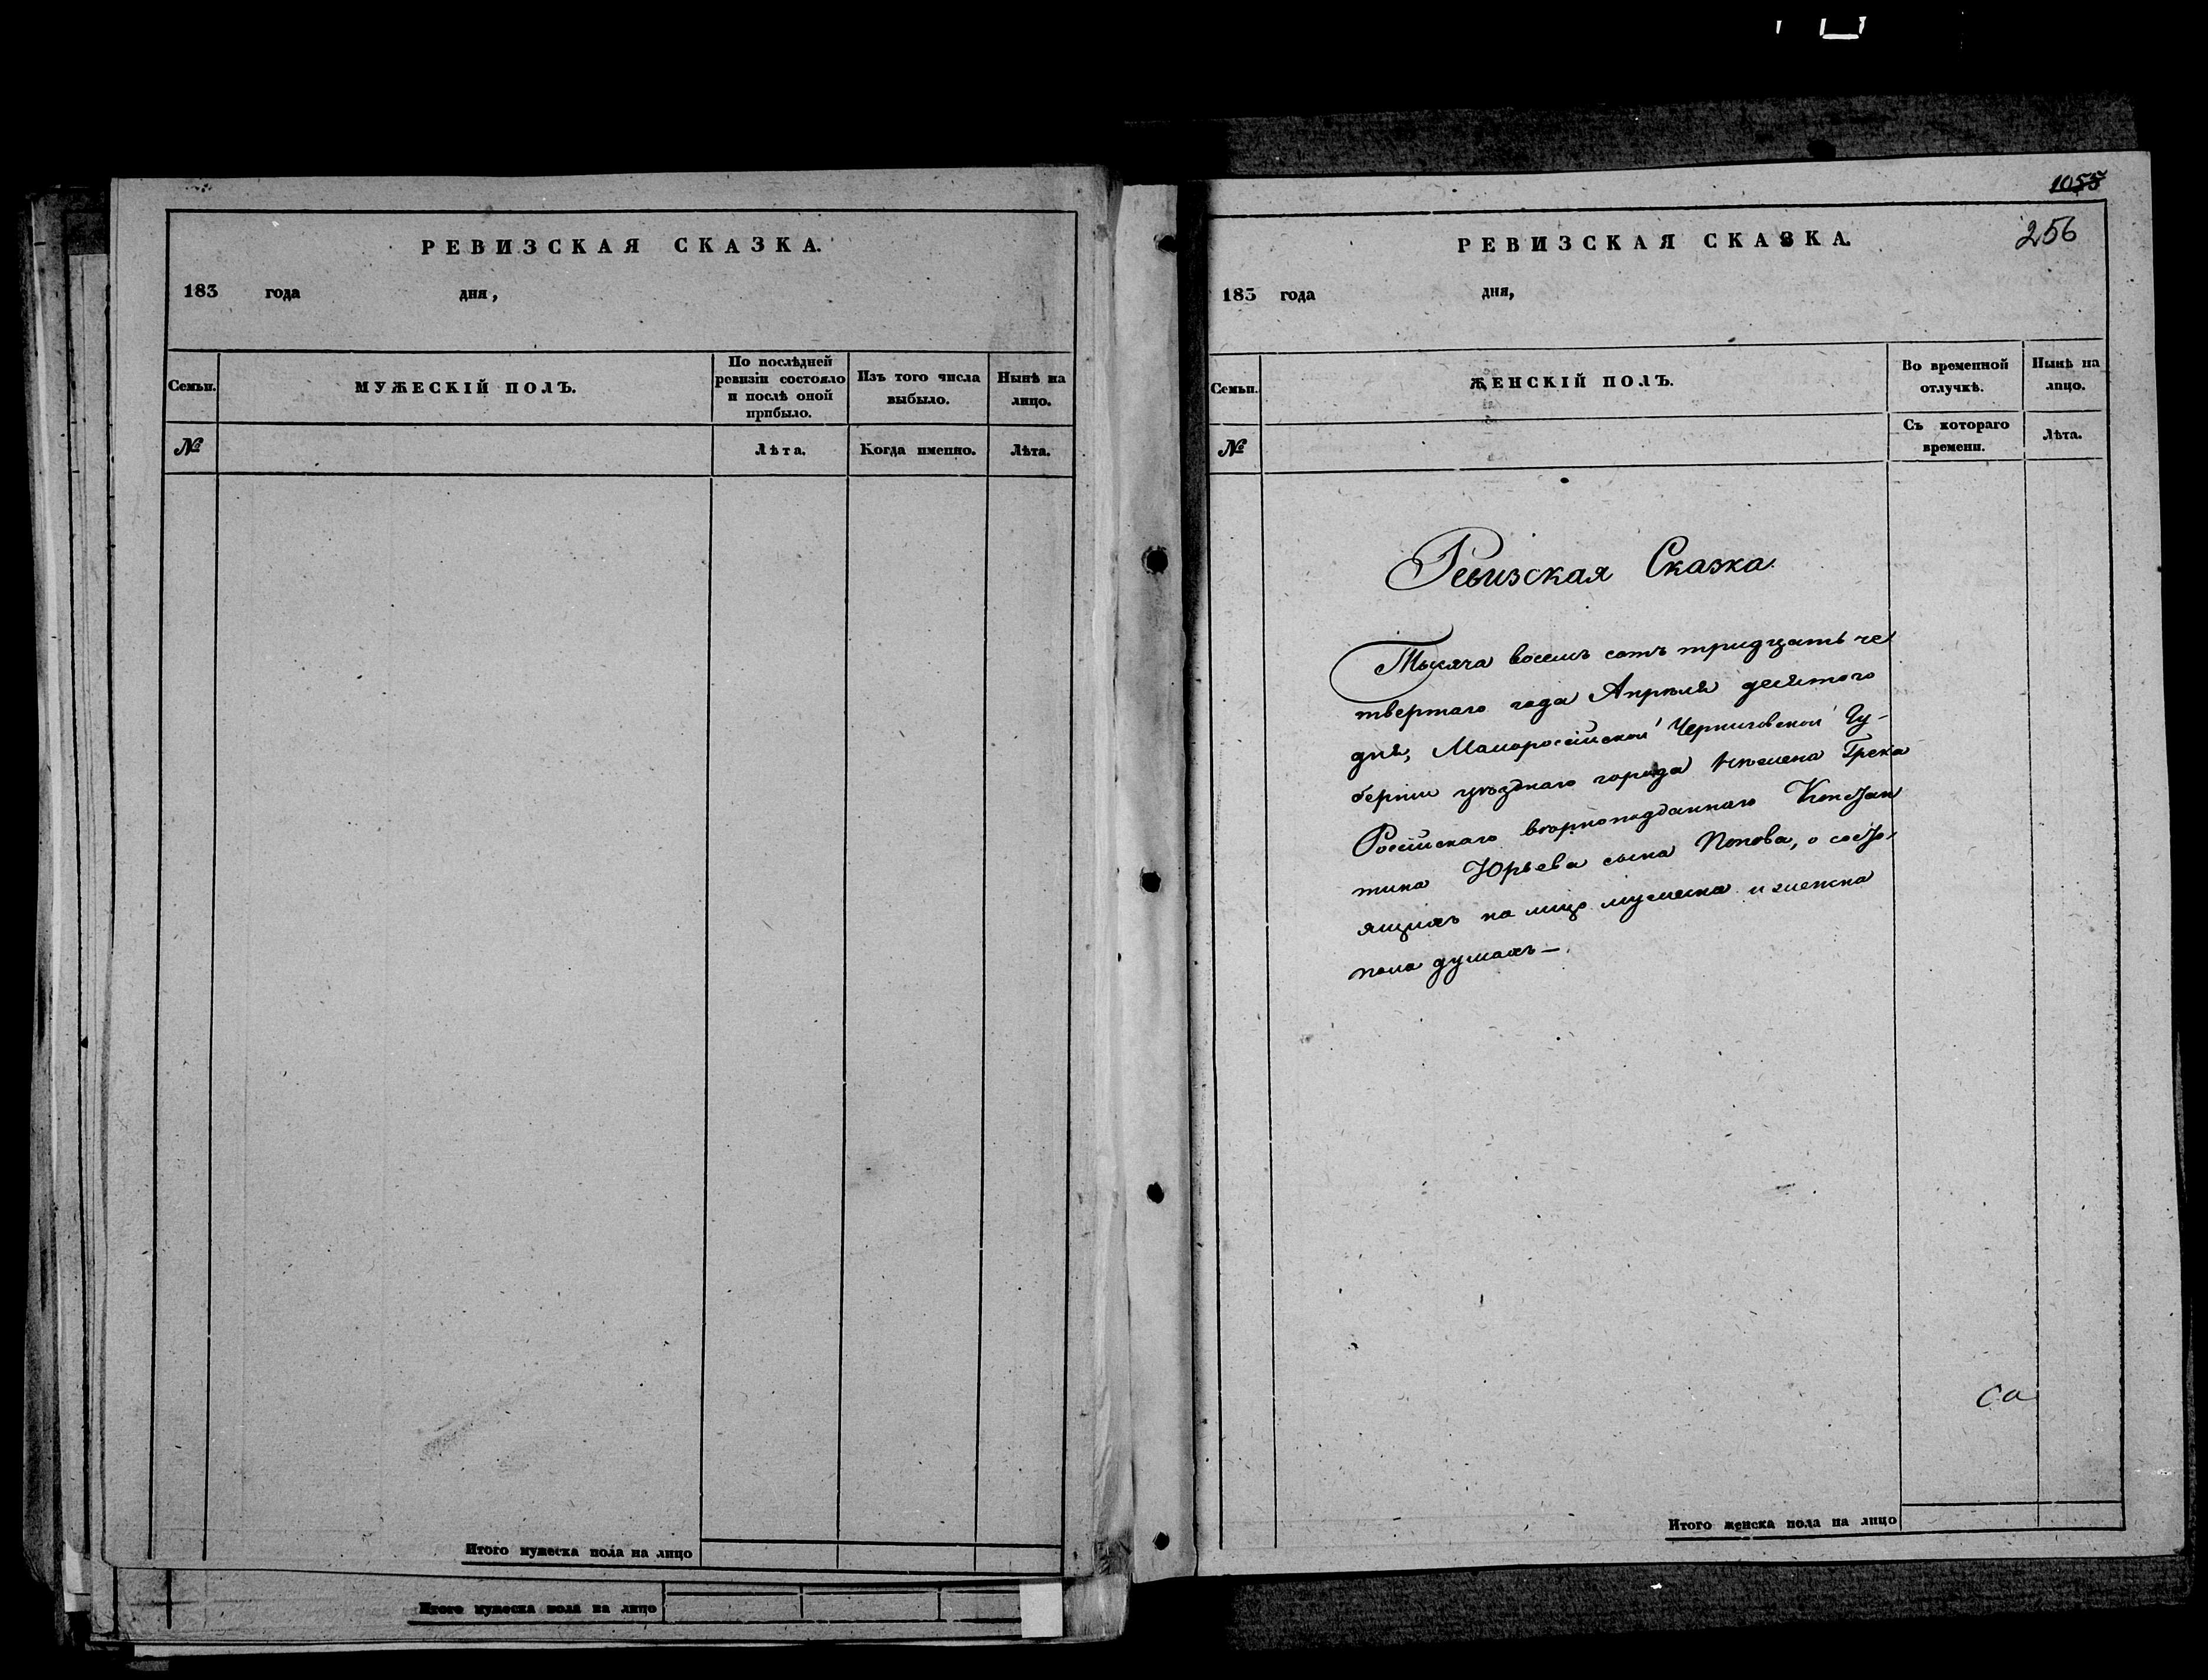 РЕВИЗСКАЯ СКАЗКА.
183 года дня,
Семьи.
МУЖЕСКІЙ ПОЛЪ.
По послѣдней
ревизіи состояло
и послѣ оной
прибыло.
Изъ того числа
выбыло.
Нынѣ на
лицо.
№
Лѣта.
Когда именно.
Лѣта.
Итого мужеска пола на лицо
Итого мужеска пола на лицо
1055
256
РЕВИЗСКАЯ СКАЗКА.
183 года дня,
Семьи.
ЖЕНСКІЙ ПОЛЪ.
Во временной
отлучкѣ.
Нынѣ на
лицо.
№
Съ котораго
времени.
Лѣта.
Ревизская Сказка.
Тысяча восемъ сотъ тридцать че
твертаго года Апрѣля десятого
дня, Малоросійской Черниговской Гу-
берніи уѣзднаго города Нѣжена Грека
Россійскаго вѣрноподданнаго Констан
тина Юрьева сына Попова, о состо
ящихъ на лицо мужеска и женска
пола душахъ —
Са
Итого женска пола на лицо